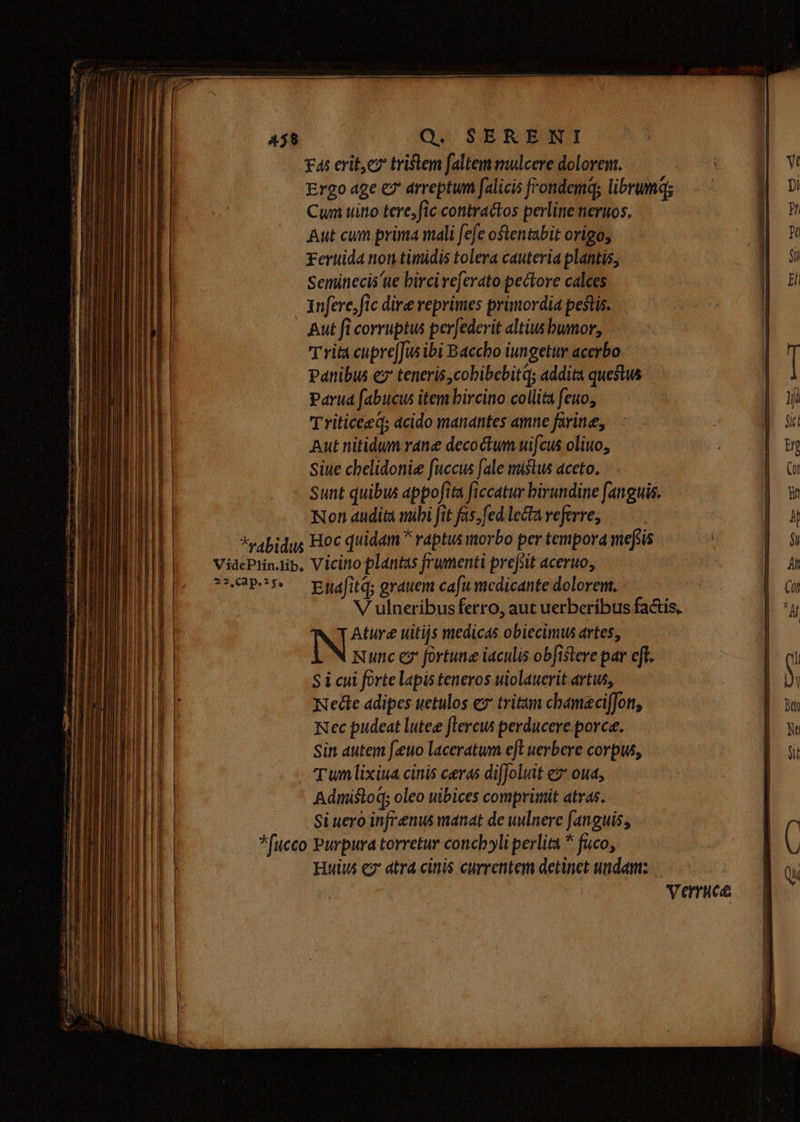 458 Q. SERENI
Fas erit,&tristem saltem mulcere dolorem.
Ergo age & arreptum salicis frondemq́; librumq́;
Cum uino tere,sic contractos perline neruos.
Aut cum prima mali sese ostentabit origo,
Feruida non timidis tolera cauteria plantis,
Seminecis'ue hirci reserato pectore calces
Infere,sic diræ reprimes primordia pestis.
Aut si corruptus persederit altius humor,
Trita cupressus ibi Baccho iungetur acerbo
Panibus & teneris,cohibebitq́; addita questus
Parua sabucus item hircino collita seuo,
Triticeæq́; acido manantes amne farinæ,
Aut nitidum ranæ decoctum uiscus oliuo,
Siue chelidoniæ succus sale mistus aceto.
Sunt quibus apposita siccatur hirundine sanguis.
Non audita mihi sit fas,sed lecta referre,
*rabidus Hoc quidam * raptus morbo per tempora messis
VidePlin.lib. Vicino plantas frumenti pressit aceruo,
22.cap.25. Euasitq́; grauem casu medicante dolorem.
Vulneribus ferro, aut uerberibus factis.
NAturæ uitijs medicas obiecimus artes,
Nunc & fortunæ iaculis obsistere par est.
Si cui forte lapis teneros uiolauerit artus,
Necte adipes uetulos & tritam chamæcisson,
Nec pudeat luteæ stercus perducere porcæ.
Sin autem sæuo laceratum est uerbere corpus,
Tum lixiua cinis ceras dissoluit & oua,
Admistoq́; oleo uibices comprimit atras.
Si uero infrænus manat de uulnere sanguis,
*succo Purpura torretur conchyli perlita * fuco,
Huius & atra cinis currentem detinet undam:
Verrucæ